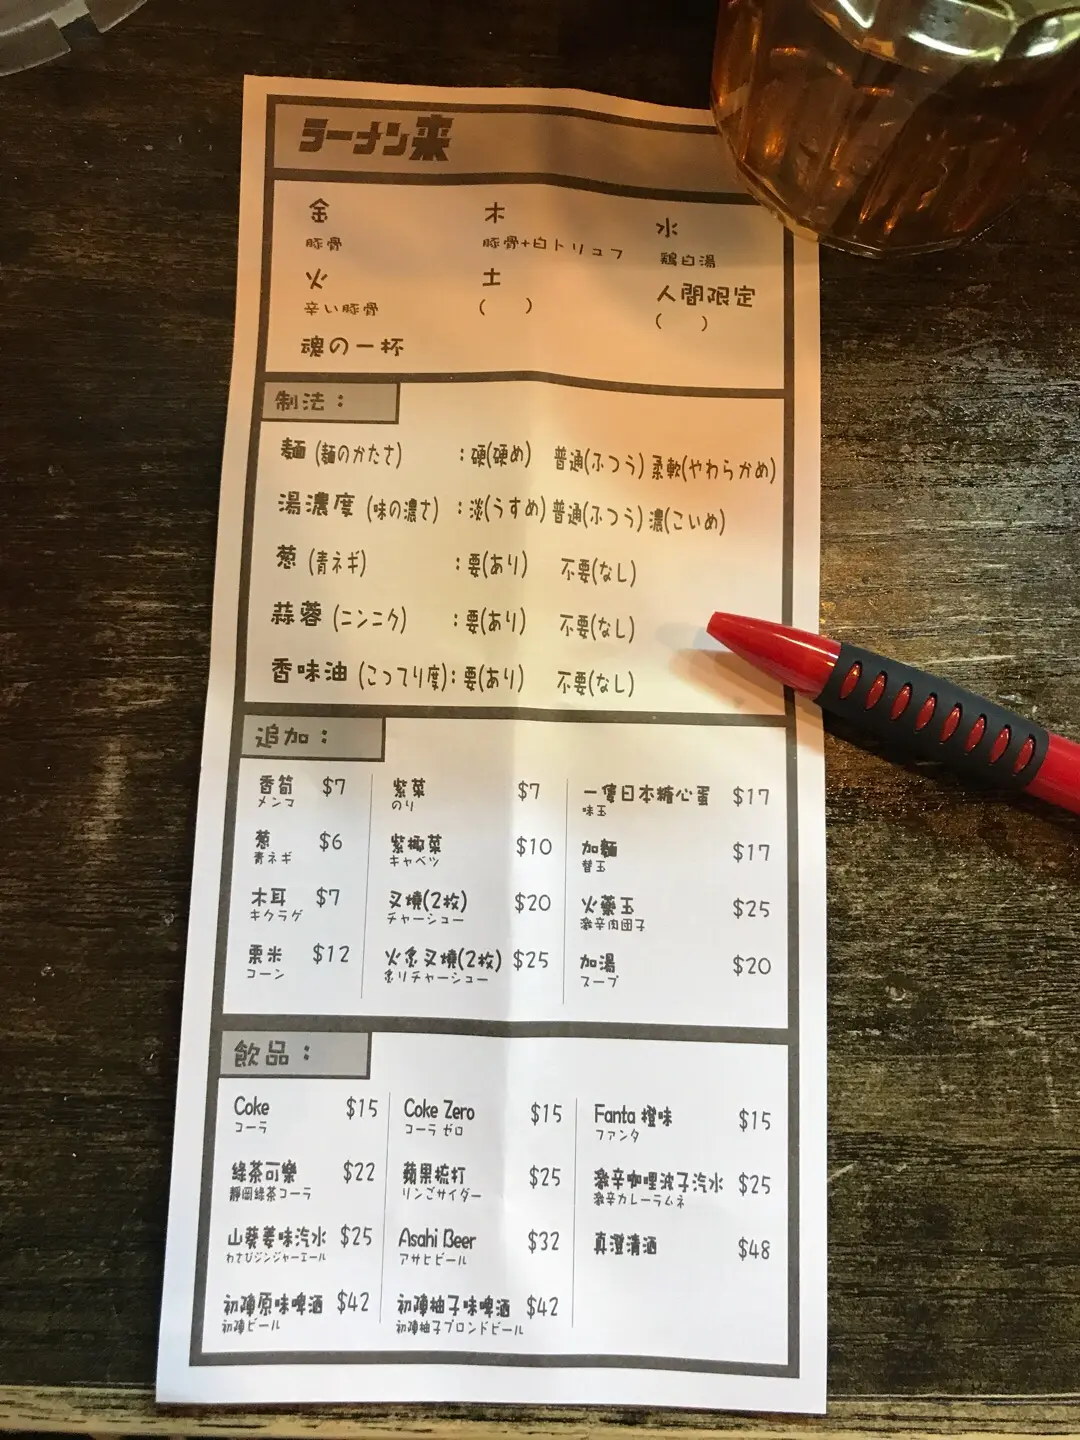 ラーメン来
金 木 水
豚骨 豚骨+白トリュフ 鶏白湯
火 土 人間限定
辛い豚骨 ( ) ( )
魂の一杯
制法：
麵 (麺のかたさ) ：硬(硬め) 普通(ふつう) 柔軟(やわらかめ)
湯濃度 (味の濃さ) ：淡(うすめ) 普通(ふつう) 濃(こいめ)
葱 (青ネギ) ：要(あり) 不要(なし)
蒜蓉 (ニンニク) ：要(あり) 不要(なし)
香味油 (こってり度)：要(あり) 不要(なし)
追加：
香筍 $7 紫菜 $7 一隻日本糖心蛋 $17
メンマ のり 味玉
葱 $6 紫椰菜 $10 加麵 $17
青ネギ キャベツ 替玉
木耳 $7 叉燒(2枚) $20 火藥玉 $25
キクラゲ チャーシュー 激辛肉団子
粟米 $12 火炙叉燒(2枚) $25 加湯 $20
コーン 炙りチャーシュー スープ
飲品：
Coke $15 Coke Zero $15 Fanta 橙味 $15
コーラ コーラ ゼロ ファンタ
綠茶可樂 $22 蘋果梳打 $25 激辛咖哩波子汽水 $25
靜岡綠茶コーラ リンごサイダー 激辛カレーラムネ
山葵姜味汽水 $25 Asahi Beer $32 真澄清酒 $48
わさびジンジャーエール アサヒビール
初陣原味啤酒 $42 初陣柚子味啤酒 $42
初陣ビール 初陣柚子ブロンドビール